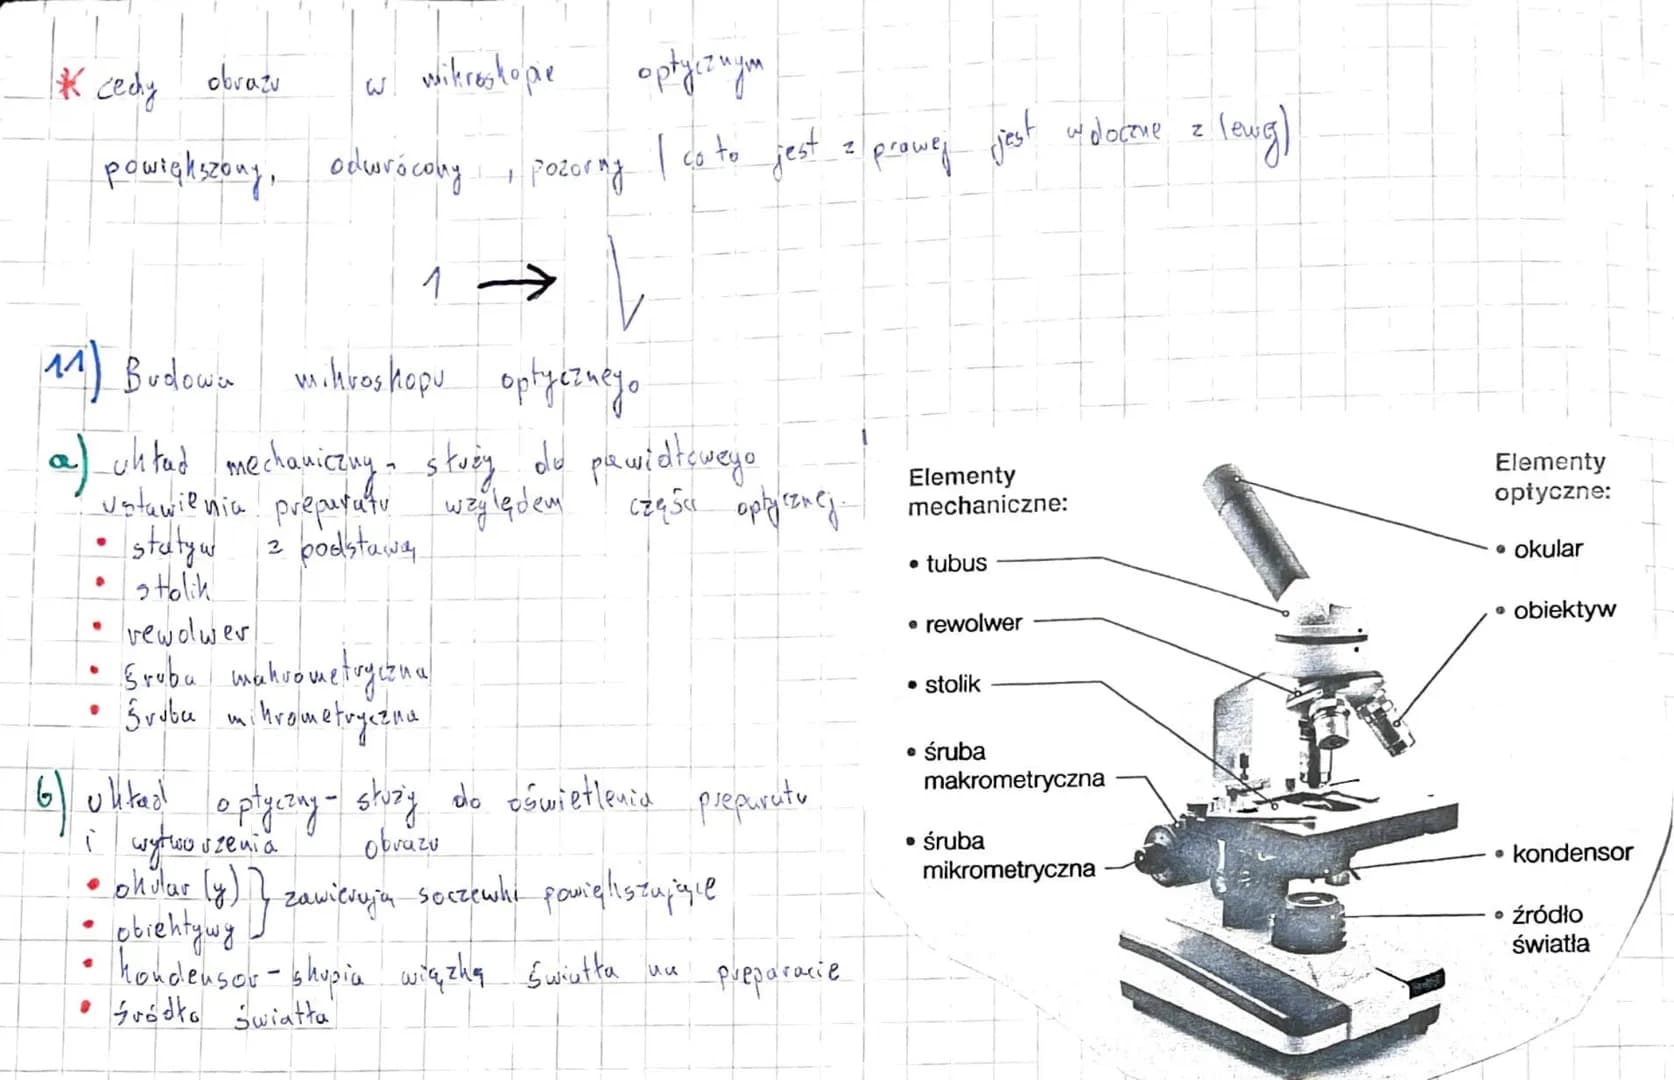 * cechy obrazu w mikroskopie optycznym
powiększony, odwrócony, pozorny (co to jest z prawej jest widoczne z lewej)
1 →
11) Budowa mikroskopu optycznego
a) układ mechaniczny - służy do prawidłowego
ustawienia preparatu względem części optycznej.
• statyw z podstawą
• stolik
• rewolwer
• śruba makrometryczna
• śruba mikrometryczna
b) układ optyczny - służy do oświetlenia preparatu
i wytworzenia obrazu
• okular (y) } zawierają soczewki powiększające
• obiektywy
• kondensor - skupia wiązkę światła na preparacie
• źródło światła
Elementy
mechaniczne:
• tubus
• rewolwer
• stolik
• śruba
makrometryczna
• śruba
mikrometryczna
Elementy
optyczne:
• okular
• obiektyw
• kondensor
• źródło
światła